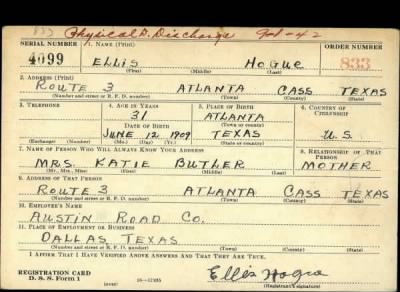 833 Physical D. Discharge
SERIAL NUMBER 1. NAME (Print) ORDER NUMBER
4099 ELLIS HOGUE 833
(First) (Middle) (Last)
2. ADDRESS (Print)
ROUTE 3 ATLANTA CASS TEXAS
(Number and street or R. F. D. number) (Town) (County) (State)
3. TELEPHONE 4. AGE IN YEARS 5. PLACE OF BIRTH 6. COUNTRY OF CITIZENSHIP
31 ATLANTA
DATE OF BIRTH (Town or county)
JUNE 12 1909 TEXAS U.S.
(Exchange) (Number) (Mo.) (Day) (Yr.) (State or country)
7. NAME OF PERSON WHO WILL ALWAYS KNOW YOUR ADDRESS 8. RELATIONSHIP OF THAT PERSON
MRS. KATIE BUTLER MOTHER
(Mr., Mrs., Miss) (First) (Middle) (Last)
9. ADDRESS OF THAT PERSON
ROUTE 3 ATLANTA CASS TEXAS
(Number and street or R. F. D. number) (Town) (County) (State)
10. EMPLOYER'S NAME
AUSTIN ROAD CO.
11. PLACE OF EMPLOYMENT OR BUSINESS
DALLAS TEXAS
(Number and street or R. F. D. number) (Town) (County) (State)
I AFFIRM THAT I HAVE VERIFIED ABOVE ANSWERS AND THAT THEY ARE TRUE.
REGISTRATION CARD Ellis Hogue
D. S. S. Form 1 (Registrant's signature)